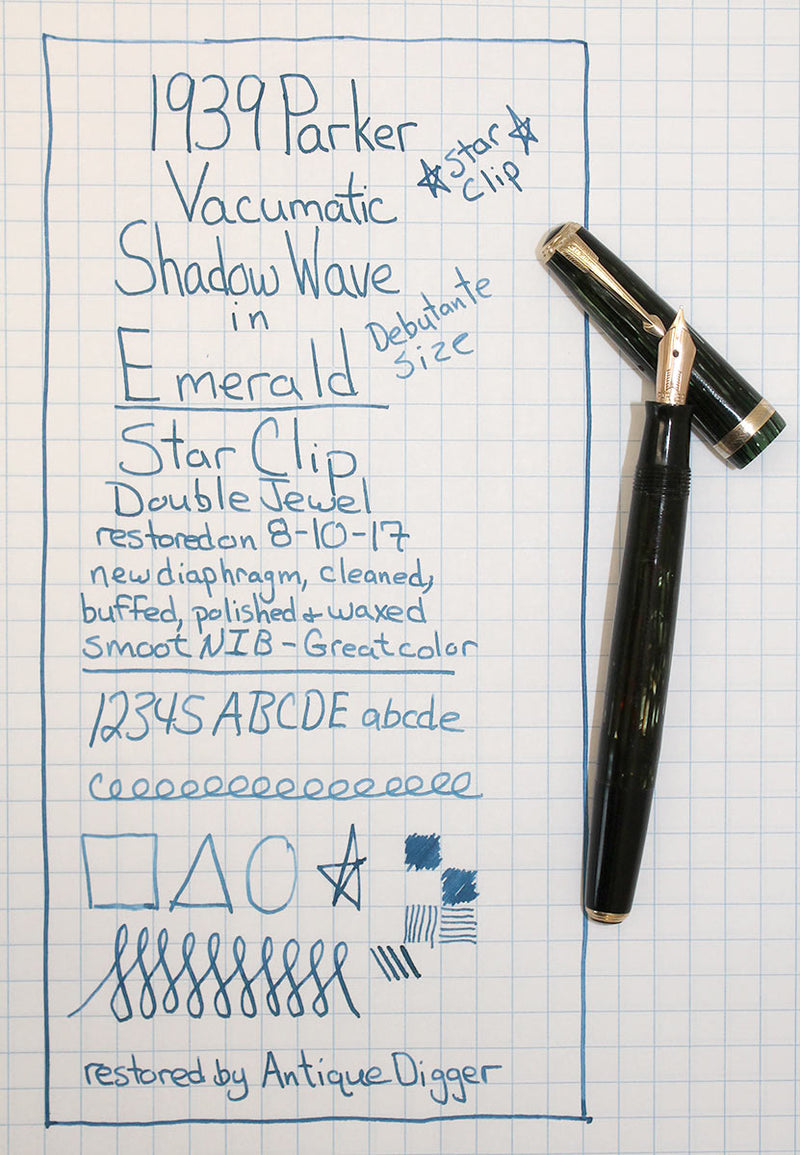 1939 Parker
Star
Clip
Vacumatic
Shadow Wave
in
Debutante
size
Emerald
Star Clip
Double Jewel
restored on 8-10-17
new diaphragm, cleaned,
buffed, polished & waxed
smoot NIB - Great color
12345 ABCDE abcde
restored by Antique Digger